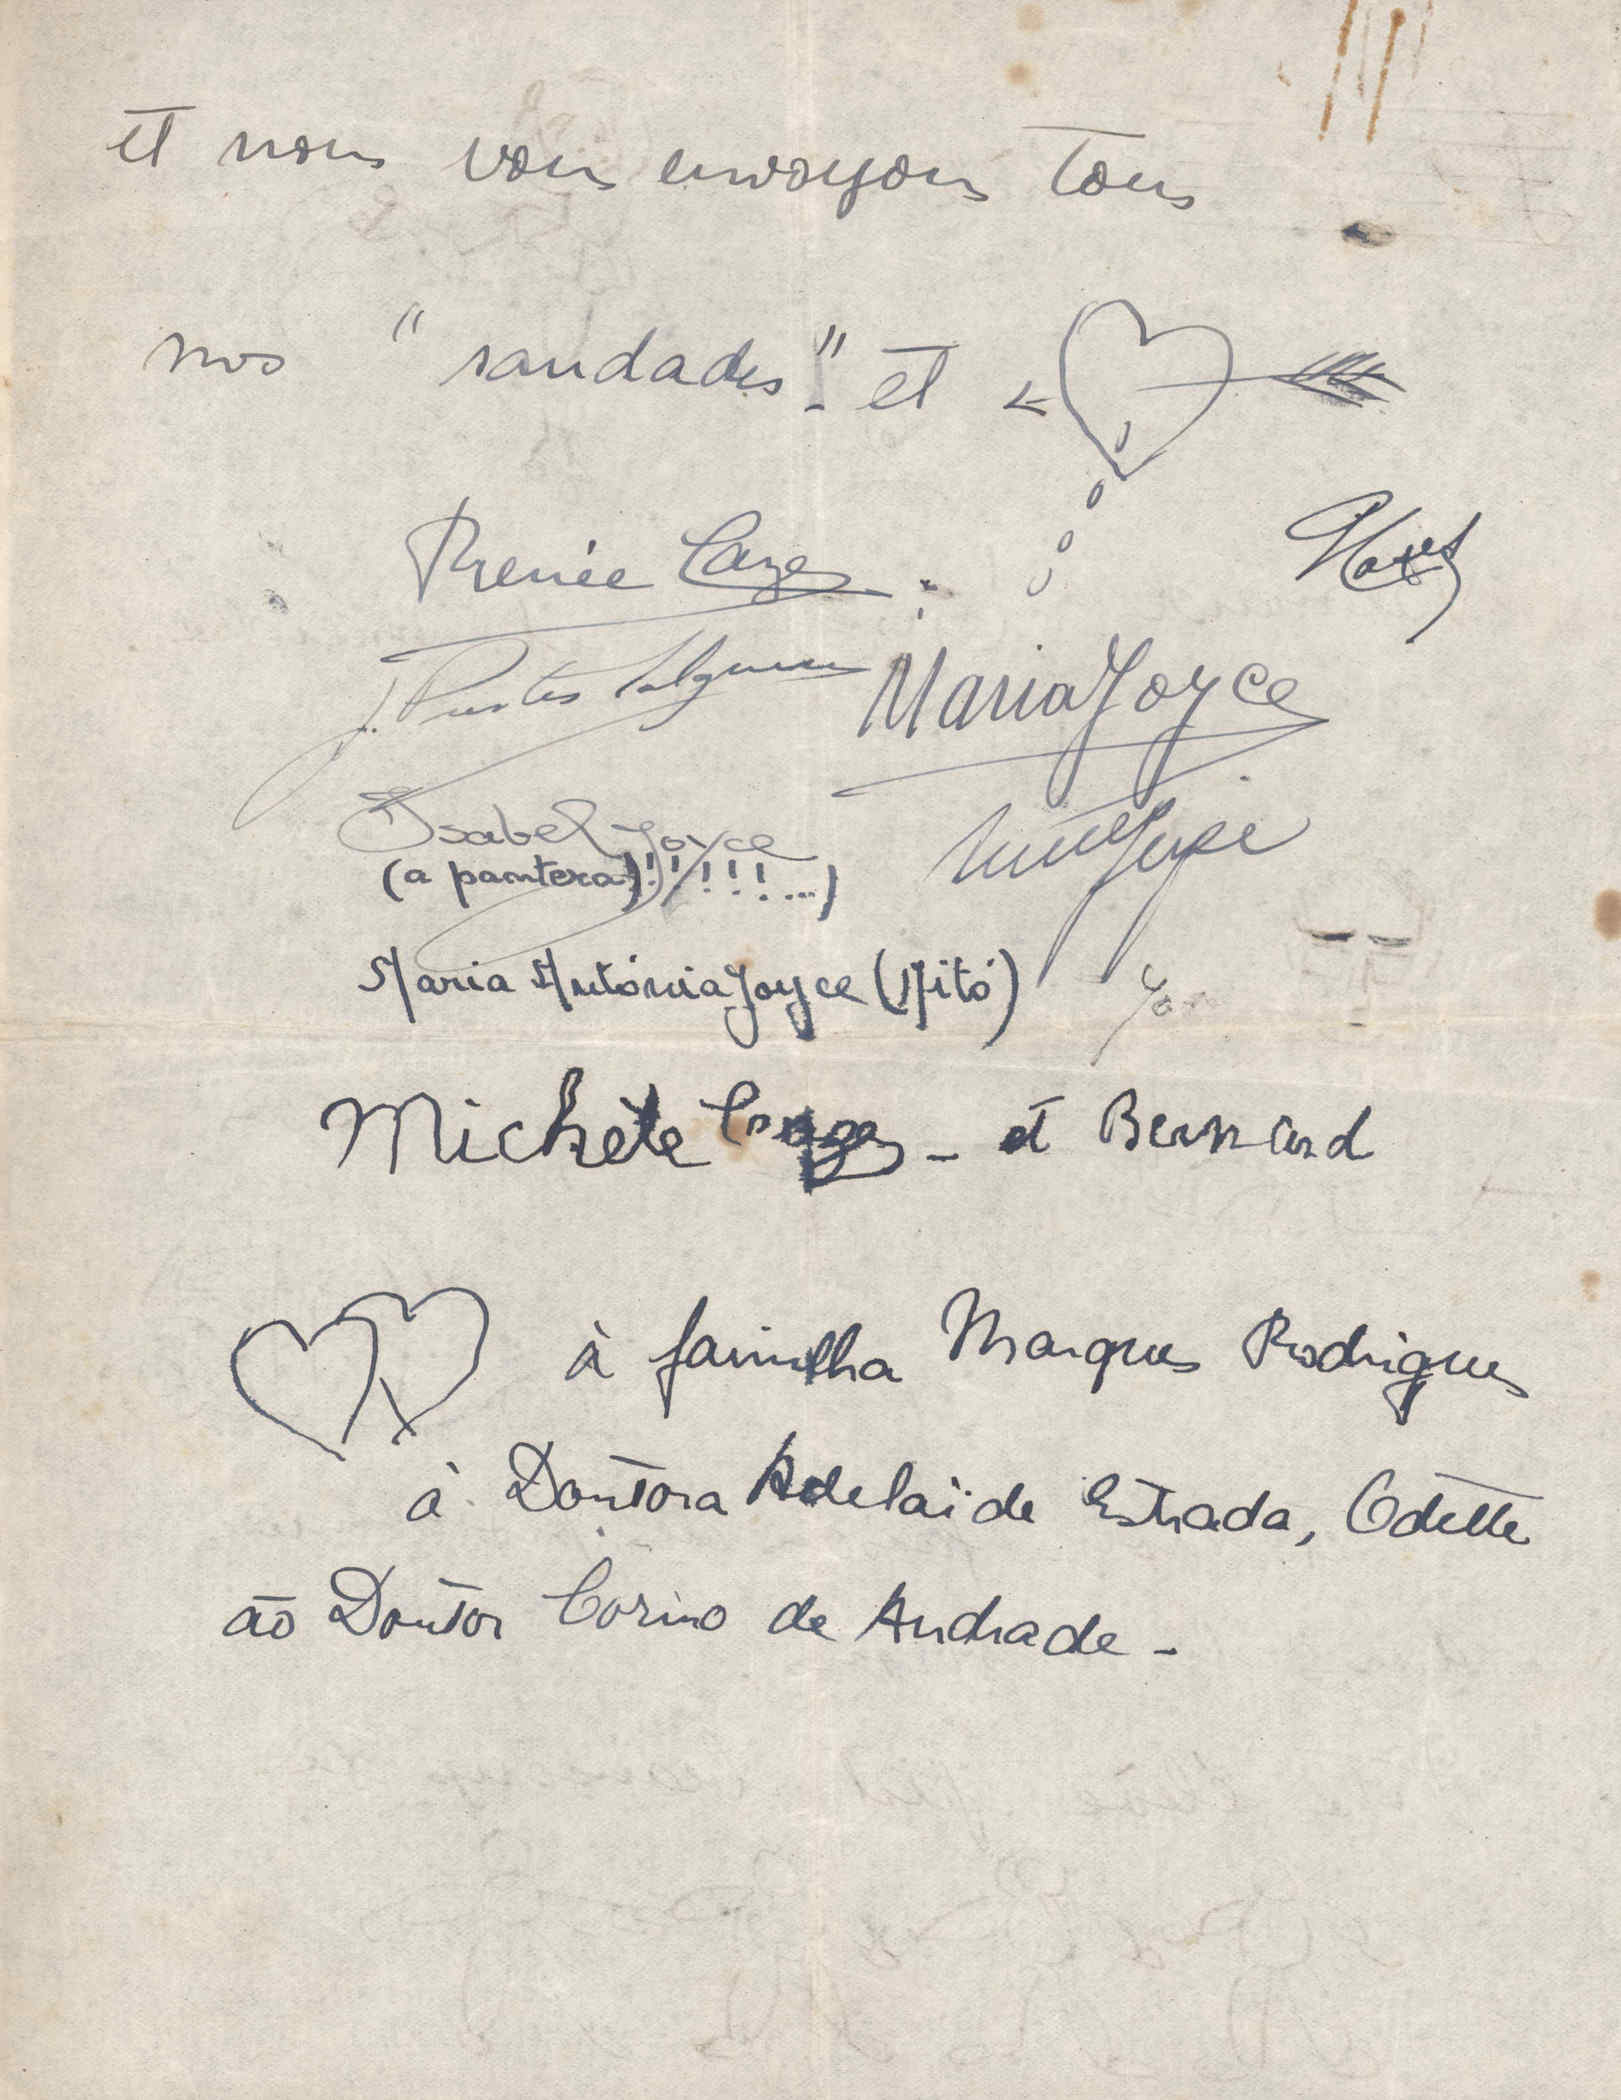 et nous vous envoyons tous
nos "saudades". et
Renée Cazes
Maria Joyce
Isabel Joyce
(a pantera)!!/!!!...)
Maria Antónia Joyce (Mitó)
Michele Cazes - et Bernard
à familha Marques Rodrigues
à Doutora Adelaïde Estrada, Odette
ao Doutor Corino de Andrade -